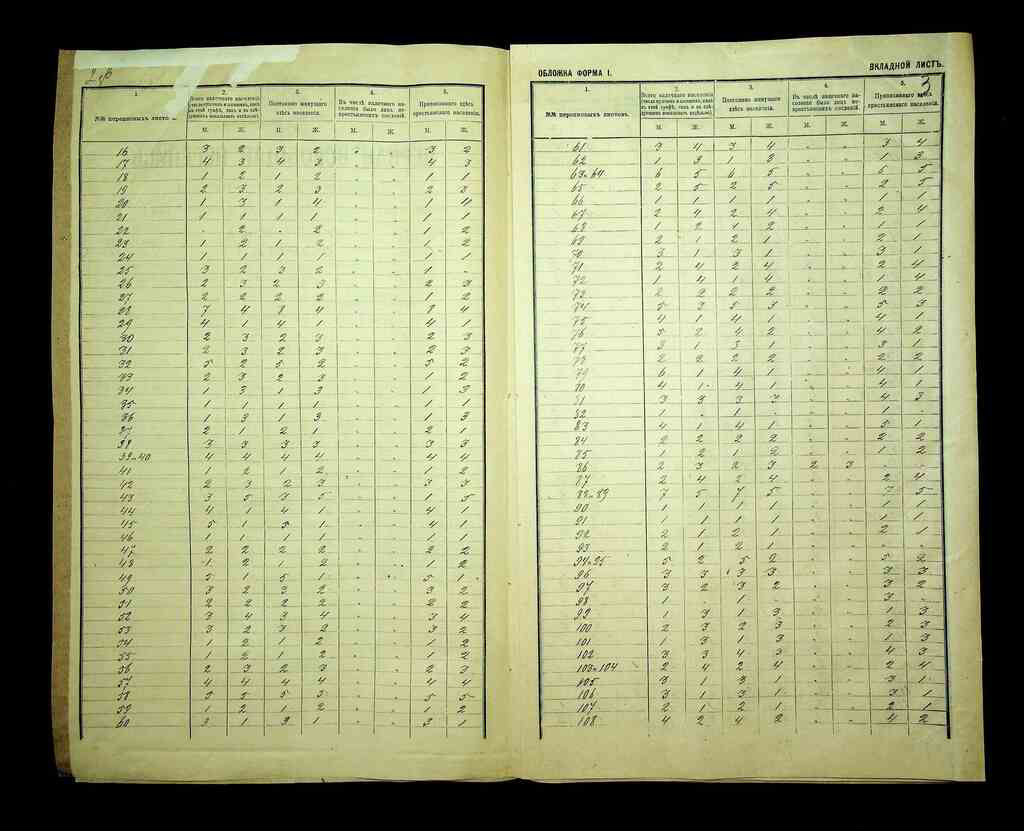 ОБЛОЖКА ФОРМА I.
ВКЛАДНОЙ ЛИСТЪ.
3
1. 2. 3. 4. 5.
Постоянно живущаго здѣсь населенія.
Приписаннаго здѣсь крестьянскаго населенія.
М. Ж. М. Ж. М. Ж. М. Ж.
16 3 2 3 2 . . 3 2
17 4 3 4 3 . . 4 3
18 1 2 1 2 . . 1 1
19 2 3 2 3 . . 2 3
20 1 3 1 4 . . 1 4
21 1 1 1 1 . . 1 1
22 . 2 . 2 . . 1 2
23 1 2 1 2 . . 1 2
24 1 1 1 1 . . 1 1
25 3 2 3 2 . . 1 -
26 2 3 2 3 . . 2 3
27 2 2 2 2 . . 1 2
28 7 4 8 4 . . 8 4
29 4 1 4 1 . . 4 1
30 2 3 2 3 . . 2 3
31 2 3 2 3 . . 2 3
32 5 2 5 2 . . 5 2
33 2 3 2 3 . . 1 2
34 1 3 1 3 . . 1 3
35 1 1 1 1 . . 1 1
36 1 3 1 3 . . 1 3
37 2 1 2 1 . . 2 1
38 3 3 3 3 . . 3 3
39-40 4 4 4 4 . . 4 4
41 1 2 1 2 . . 1 2
42 2 3 2 3 . . 3 3
43 3 5 3 5 . . 1 5
44 4 1 4 1 . . 4 1
45 5 1 5 1 . . 4 1
46 1 1 1 1 . . 1 1
47 2 2 2 2 . . 2 2
48 1 2 1 2 . . 1 2
49 5 1 5 1 . . 5 1
50 3 2 3 2 . . 3 2
51 2 2 2 2 . . 2 2
52 3 4 3 4 . . 3 4
53 3 2 3 2 . . 3 2
54 1 2 1 2 . . 1 2
55 1 2 1 2 . . 1 2
56 2 3 2 3 . . 2 3
57 4 4 4 4 . . 4 4
58 3 5 5 5 . . 5 5
59 1 2 1 2 . . 1 2
60 3 1 3 1 . . 3 1
1. 2. 3. 4. 5.
№№ переписныхъ листовъ.
Постоянно живущаго здѣсь населенія.
Приписаннаго здѣсь крестьянскаго населенія.
М. Ж. М. Ж. М. Ж. М. Ж.
61 3 4 3 4 . . 3 4
62 1 3 1 3 . . 1 3
63-64 6 5 6 5 . . 6 5
65 2 5 2 5 . . 2 5
66 1 1 1 1 . . 1 1
67 2 4 2 4 . . 2 4
68 1 2 1 2 . . 1 1
69 2 1 2 1 . . 2 1
70 3 1 3 1 . . 3 1
71 2 4 2 4 . . 2 4
72 1 4 1 4 . . 1 4
73 2 2 2 2 . . 2 2
74 5 3 5 3 . . 5 3
75 4 1 4 1 . . 4 1
76 5 2 4 2 . . 4 2
77 3 1 3 1 . . 3 1
78 2 2 2 2 . . 2 2
79 6 1 4 1 . . 4 1
80 4 1 4 1 . . 4 1
81 3 3 3 3 . . 4 3
82 1 . 1 . . . 1 .
83 4 1 4 1 . . 5 1
84 2 2 2 2 . . 2 2
85 1 2 1 2 . . 1 2
86 2 3 2 3 2 3 . .
87 2 4 2 4 . . 2 4
88-89 7 5 7 5 . . 7 5
90 1 1 1 1 . . 1 1
91 1 1 1 1 . . 1 1
92 2 1 2 1 . . 2 1
93 2 1 2 1 . . . .
94-95 5 2 5 2 . . 5 2
96 3 3 3 3 . . 3 3
97 3 2 3 2 . . 3 2
98 1 . 1 . . . 3 .
99 1 3 1 3 . . 1 3
100 2 3 2 3 . . 2 3
101 1 3 1 3 . . 1 3
102 3 3 4 3 . . 4 3
103-104 2 4 2 4 . . 2 4
105 3 1 3 1 . . 3 1
106 3 1 3 1 . . 3 1
107 2 1 2 1 . . 2 1
108 4 2 4 2 . . 4 2